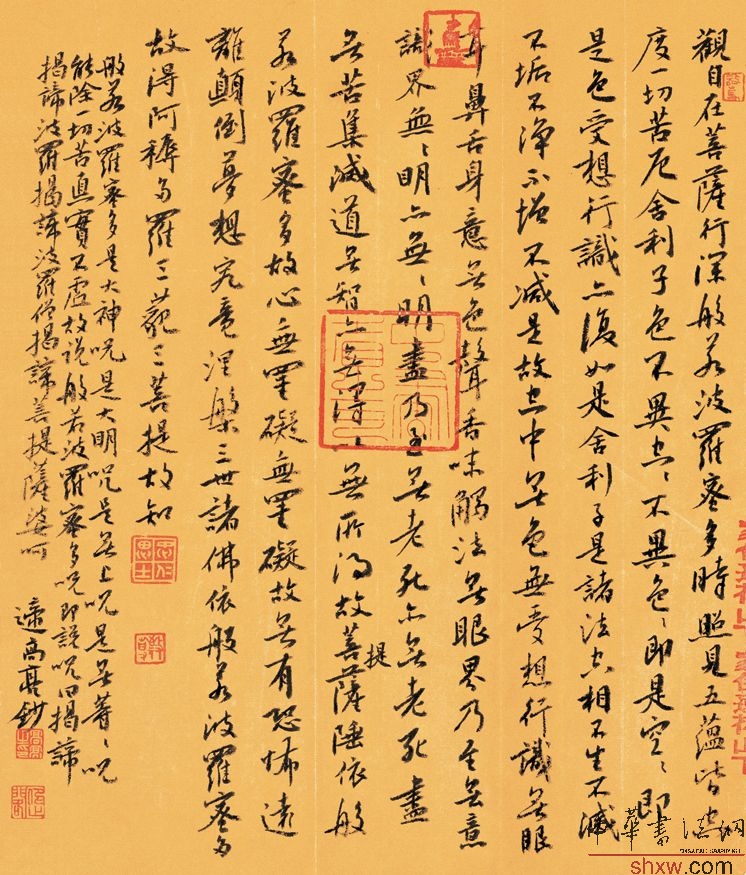 觀自在菩薩行深般若波羅蜜多時照見五蘊皆空
度一切苦厄舍利子色不異空〻不異色〻即是空〻即
是色受想行識亦復如是舍利子是諸法空相不生不滅
不垢不淨不增不減是故空中無色無受想行識無眼
耳鼻舌身意無色聲香味觸法無眼界乃至無意
識界無〻明亦無〻明盡乃至無老死亦無老死盡
無苦集滅道無智亦無得以無所得故菩提薩埵依般
若波羅蜜多故心無罣礙無罣礙故無有恐怖遠
離顛倒夢想究竟涅槃三世諸佛依般若波羅蜜多
故得阿耨多羅三藐三菩提故知
般若波羅蜜多是大神咒是大明咒是無上咒是無等〻咒
能除一切苦真實不虛故說般若波羅蜜多咒即說咒曰揭諦
揭諦波羅揭諦波羅僧揭諦菩提薩婆訶
高 鈔
中華書法網
shxw.com